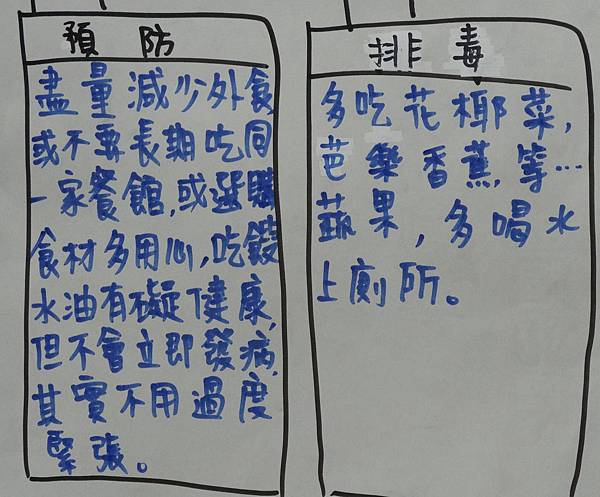 預防
盡量減少外食
或不要長期吃同
一家餐館,或選購
食材多用心,吃餿
水油有礙健康,
但不會立即發病,
其實不用過度
緊張。
排毒
多吃花椰菜,
芭樂香蕉,等…
蔬果,多喝水
上廁所。